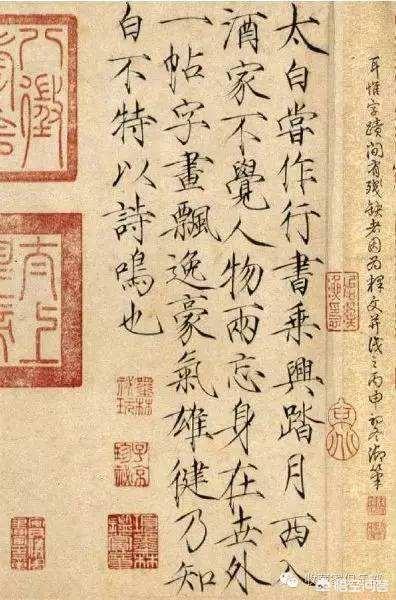 耳惟字蹟間有残缺者因為釋文并識之丙申初冬御筆
太白嘗作行書乘興踏月西入
酒家不覺人物兩忘身在世外
一帖字畫飄逸豪氣雄健乃知
白不特以詩鳴也
悟空问答